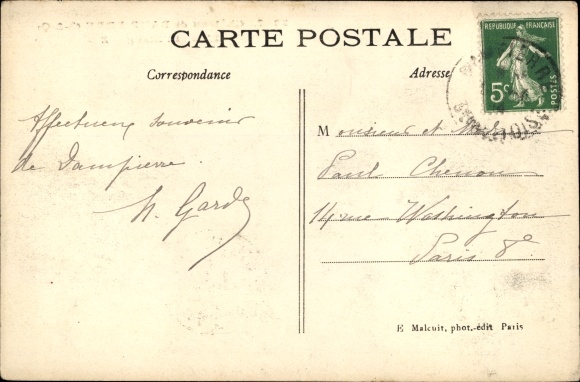 CARTE POSTALE
Correspondance
Adresse
REPUBLIQUE FRANÇAISE
5c
POSTES
Affectueux souvenir
de Dampierre.
Monsieur et
Paul Chenou
14 rue Washington
Paris 8e
E Malcuit, phot.-édit Paris